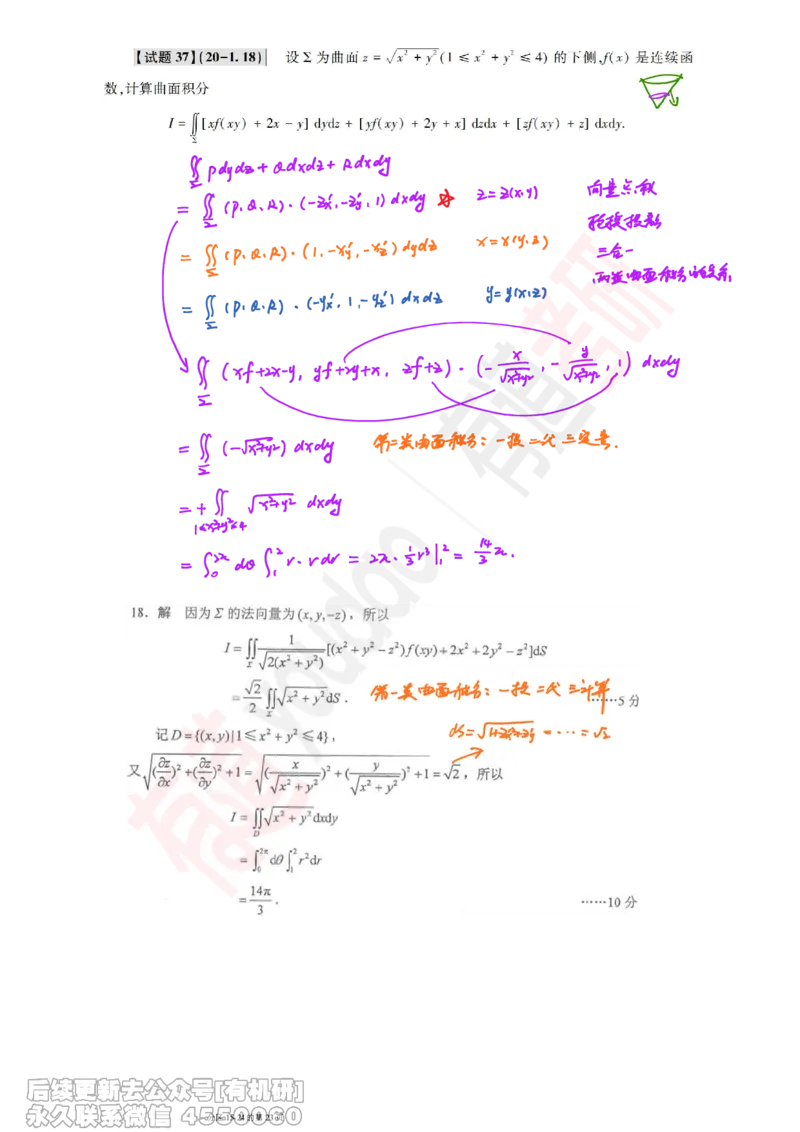 【试题 37】(20-1.18) 设 Σ 为曲面 z = √(x² + y²) (1 ≤ x² + y² ≤ 4) 的下侧, f(x) 是连续函
数,计算曲面积分
I = ∬_Σ [xf(xy) + 2x - y] dydz + [yf(xy) + 2y + x] dzdx + [zf(xy) + z] dxdy.
∬_Σ Pdydz + Qdxdz + Rdxdy
= ∬_Σ (P, Q, R)·(-z'x, -z'y, 1) dxdy ☆ z = z(x·y) 向量点积
轮换投影
= ∬_Σ (P, Q, R)·(1, -x'y, -x'z) dydz x = x(y, z) 三合一
两类曲面积分的关系
= ∬_Σ (P, Q, R)·(-y'x, 1, -y'z) dxdz y = y(x, z)
∬_Σ (xf+2x-y, yf+2y+x, zf+z)·(-x/√(x²+y²), -y/√(x²+y²), 1) dxdy
= ∬_Σ (-√(x²+y²)) dxdy 第二类曲面积分: 一投二代三定号.
= + ∬_{1≤x²+y²≤4} √(x²+y²) dxdy
= ∫₀^{2π} dθ ∫₁² r·r dr = 2π·1/3 r³|₁² = 14/3 π.
18. 解 因为 Σ 的法向量为 (x, y, -z), 所以
I = ∬_Σ 1/√(2(x² + y²)) [(x² + y² - z²)f(xy) + 2x² + 2y² - z²]dS
= √2/2 ∬_Σ √(x² + y²) dS. 第一类曲面积分: 一投二代三计算 ……5 分
记 D = {(x, y)|1 ≤ x² + y² ≤ 4},
又 √((∂z/∂x)² + (∂z/∂y)² + 1) = √((x/√(x² + y²))² + (y/√(x² + y²))² + 1) = √2, 所以
I = ∬_D √(x² + y²) dxdy
= ∫₀^{2π} dθ ∫₁² r² dr
= 14π/3. ……10 分
有道考研
有道 youdao
后续更新去公众号[有机研]
永久联系微信 4550000